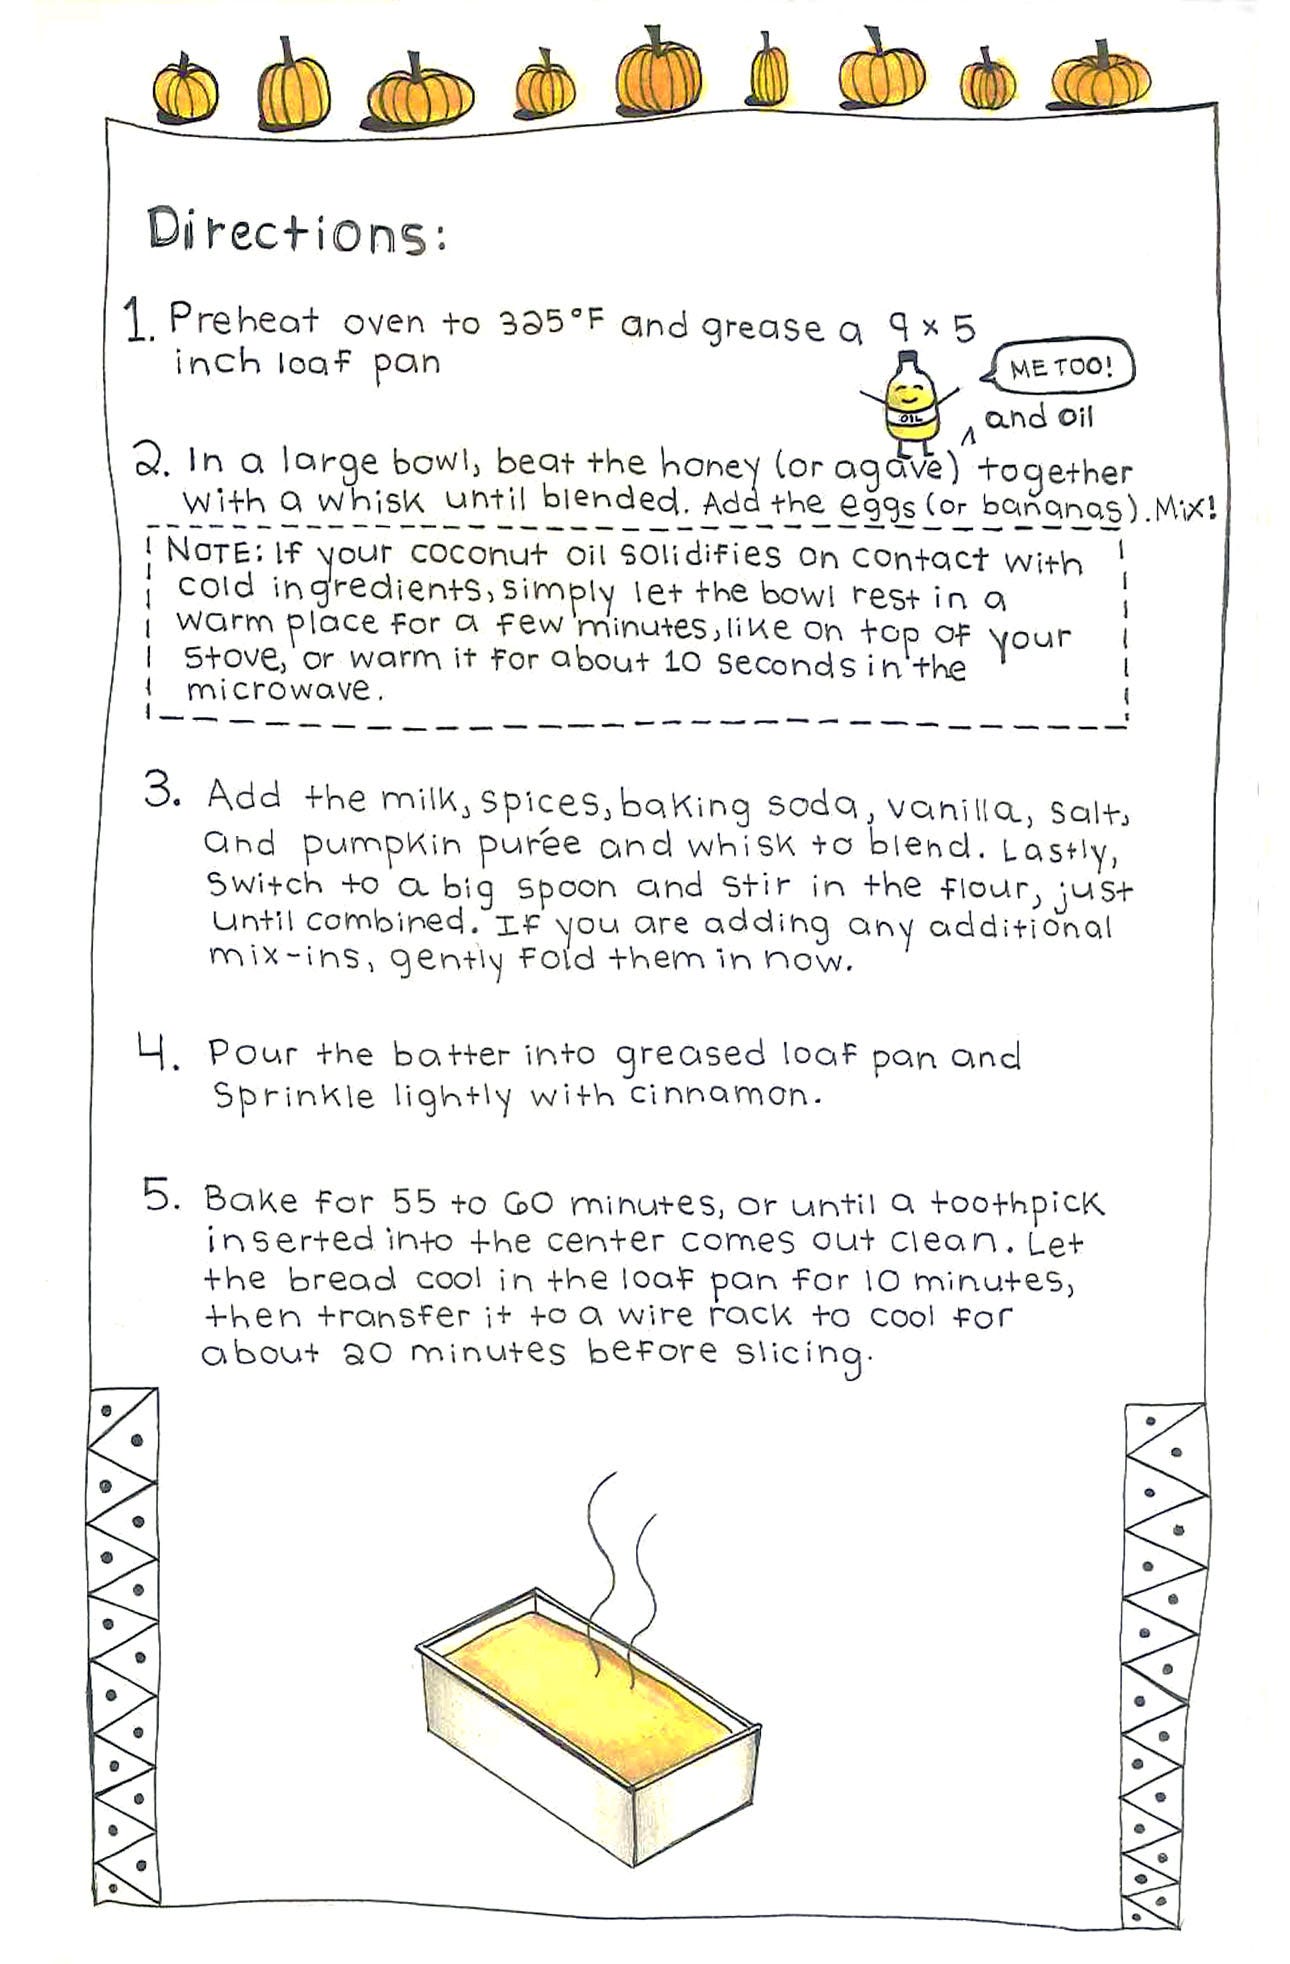 Directions:
1. Preheat oven to 325°F and grease a 9 x 5
inch loaf pan
ME TOO!
OIL
and oil
2. In a large bowl, beat the honey (or agave) ^ together
with a whisk until blended. Add the eggs (or bananas). Mix!
NOTE: If your coconut oil solidifies on contact with
cold ingredients, simply let the bowl rest in a
warm place for a few minutes, like on top of your
stove, or warm it for about 10 seconds in the
microwave.
3. Add the milk, spices, baking soda, vanilla, salt,
and pumpkin purée and whisk to blend. Lastly,
switch to a big spoon and stir in the flour, just
until combined. If you are adding any additional
mix-ins, gently fold them in now.
4. Pour the batter into greased loaf pan and
sprinkle lightly with cinnamon.
5. Bake for 55 to 60 minutes, or until a toothpick
inserted into the center comes out clean. Let
the bread cool in the loaf pan for 10 minutes,
then transfer it to a wire rack to cool for
about 20 minutes before slicing.